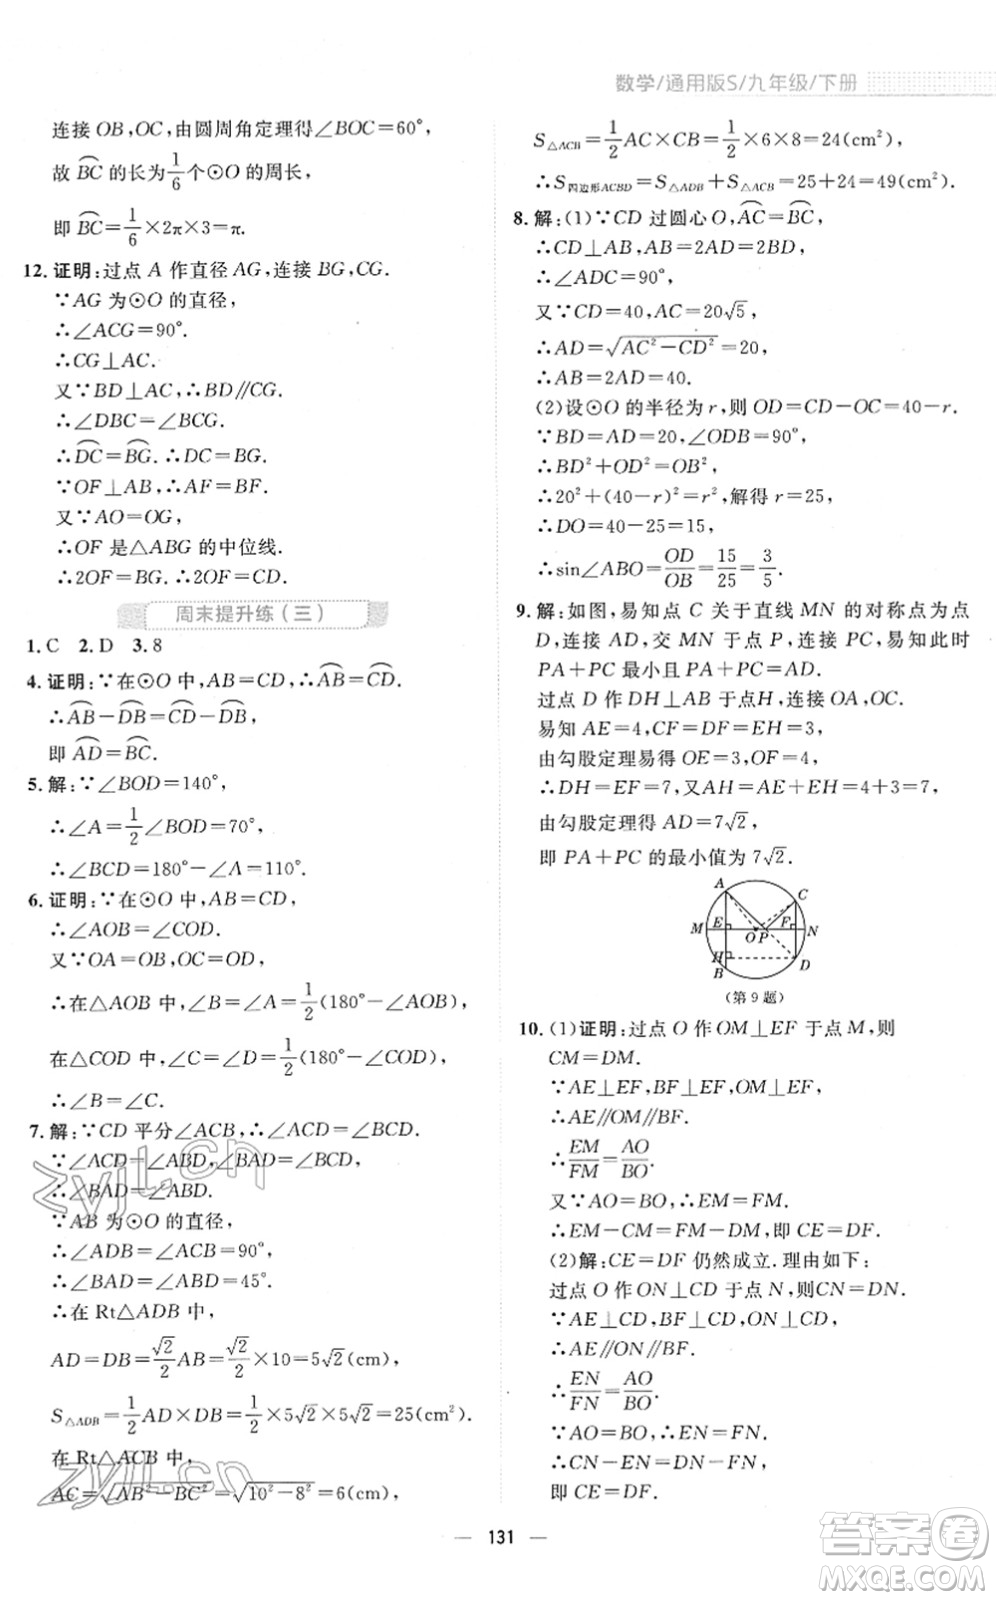 数学/通用版S/九年级/下册
连接 OB,OC,由圆周角定理得∠BOC=60°,
故 $\overset{\frown}{BC}$ 的长为 $\frac{1}{6}$ 个⊙O 的周长,
即 $\overset{\frown}{BC}=\frac{1}{6}$×2π×3=π.
12. 证明:过点 A 作直径 AG,连接 BG,CG.
∵AG 为⊙O 的直径,
∴∠ACG=90°.
∴CG⊥AC.
又∵BD⊥AC,∴BD∥CG.
∴∠DBC=∠BCG.
∴$\overset{\frown}{DC}=\overset{\frown}{BG}$.∴DC=BG.
∵OF⊥AB,∴AF=BF.
又∵AO=OG,
∴OF 是△ABG 的中位线.
∴2OF=BG.∴2OF=CD.
周末提升练(三)
1.C 2.D 3.8
4. 证明:∵在⊙O 中,AB=CD,∴$\overset{\frown}{AB}=\overset{\frown}{CD}$.
∴$\overset{\frown}{AB}-\overset{\frown}{DB}=\overset{\frown}{CD}-\overset{\frown}{DB}$,
即 $\overset{\frown}{AD}=\overset{\frown}{BC}$.
5. 解:∵∠BOD=140°,
∴∠A=$\frac{1}{2}$∠BOD=70°,
∴∠BCD=180°−∠A=110°.
6. 证明:∵在⊙O 中,AB=CD,
∴∠AOB=∠COD.
又∵OA=OB,OC=OD,
∴在△AOB 中,∠B=∠A=$\frac{1}{2}$(180°−∠AOB),
在△COD 中,∠C=∠D=$\frac{1}{2}$(180°−∠COD),
∴∠B=∠C.
7. 解:∵CD 平分∠ACB,∴∠ACD=∠BCD.
∵∠ACD=∠ABD,∠BAD=∠BCD,
∴∠BAD=∠ABD.
∵AB 为⊙O 的直径,
∴∠ADB=∠ACB=90°,
∴∠BAD=∠ABD=45°.
∴在 Rt△ADB 中,
AD=DB=$\frac{\sqrt{2}}{2}$AB=$\frac{\sqrt{2}}{2}$×10=5$\sqrt{2}$(cm),
$S_{△ADB}=\frac{1}{2}$AD×DB=$\frac{1}{2}$×5$\sqrt{2}$×5$\sqrt{2}$=25(cm²).
在 Rt△ACB 中,
AC=$\sqrt{AB^2-BC^2}=\sqrt{10^2-8^2}$=6(cm),
$S_{△ACB}=\frac{1}{2}$AC×CB=$\frac{1}{2}$×6×8=24(cm²),
∴$S_{四边形ACBD}=S_{△ADB}+S_{△ACB}$=25+24=49(cm²).
8. 解:(1)∵CD 过圆心 O,$\overset{\frown}{AC}=\overset{\frown}{BC}$,
∴CD⊥AB,AB=2AD=2BD,
∴∠ADC=90°,
又∵CD=40,AC=20$\sqrt{5}$,
∴AD=$\sqrt{AC^2-CD^2}$=20,
∴AB=2AD=40.
(2)设⊙O 的半径为 r,则 OD=CD−OC=40−r.
∵BD=AD=20,∠ODB=90°,
∴BD²+OD²=OB²,
∴20²+(40−r)²=r²,解得 r=25,
∴DO=40−25=15,
∴sin∠ABO=$\frac{OD}{OB}=\frac{15}{25}=\frac{3}{5}$.
9. 解:如图,易知点 C 关于直线 MN 的对称点为点
D,连接 AD,交 MN 于点 P,连接 PC,易知此时
PA+PC 最小且 PA+PC=AD.
过点 D 作 DH⊥AB 于点H,连接 OA,OC.
易知 AE=4,CF=DF=EH=3,
由勾股定理易得 OE=3,OF=4,
∴DH=EF=7,AH=AE+EH=4+3=7,
由勾股定理得 AD=7$\sqrt{2}$,
即 PA+PC 的最小值为 7$\sqrt{2}$.
A C
M E O P F N
H D
B
(第 9 题)
10. (1)证明:过点 O 作 OM⊥EF 于点 M,则
CM=DM.
∵AE⊥EF,BF⊥EF,OM⊥EF,
∴AE∥OM∥BF.
∴$\frac{EM}{FM}=\frac{AO}{BO}$.
又∵AO=BO,∴EM=FM.
∴EM−CM=FM−DM,即 CE=DF.
(2)解:CE=DF 仍然成立.理由如下:
过点 O 作 ON⊥CD 于点 N,则CN=DN.
∵AE⊥CD,BF⊥CD,ON⊥CD,
∴AE∥ON∥BF.
∴$\frac{EN}{FN}=\frac{AO}{BO}$.
∵AO=BO,∴EN=FN.
∴CN−EN=DN−FN,
即 CE=DF.
131
zyjl.cn
zyjl.cn
答案圈
MXQE.COM